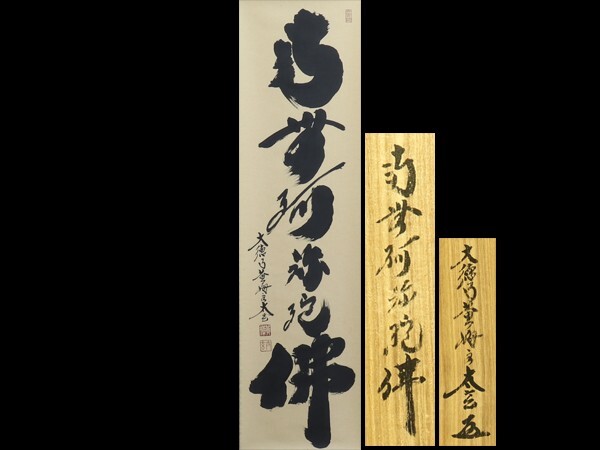 南無阿弥陀佛
大徳寺黄梅主太玄
南無阿弥陀佛
大徳寺黄梅主太玄